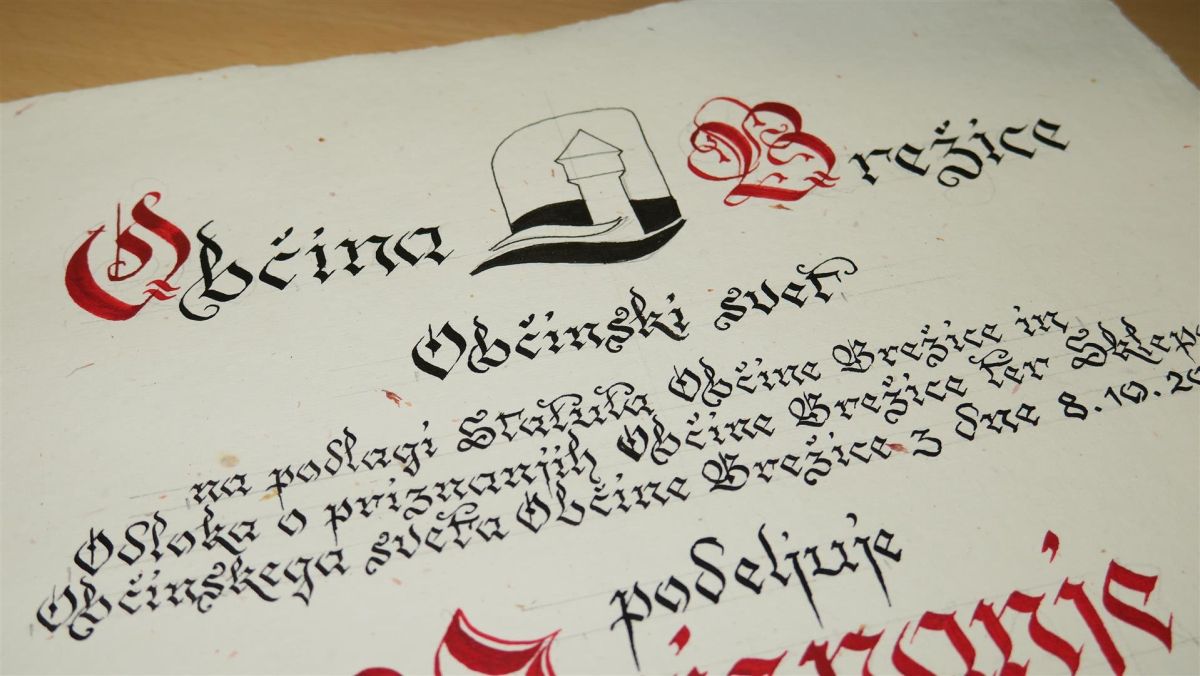 Občina Brežice
Občinski svet
na podlagi Statuta Občine Brežice in
Odloka o priznanjih Občine Brežice ter
Občinskega sveta Občine Brežice z dne 8.10.
podeljuje